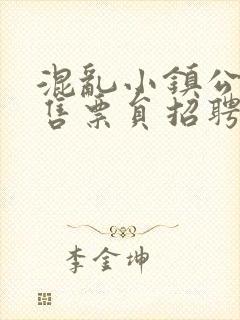 混亂小鎮公
售票員招聘
李金坤